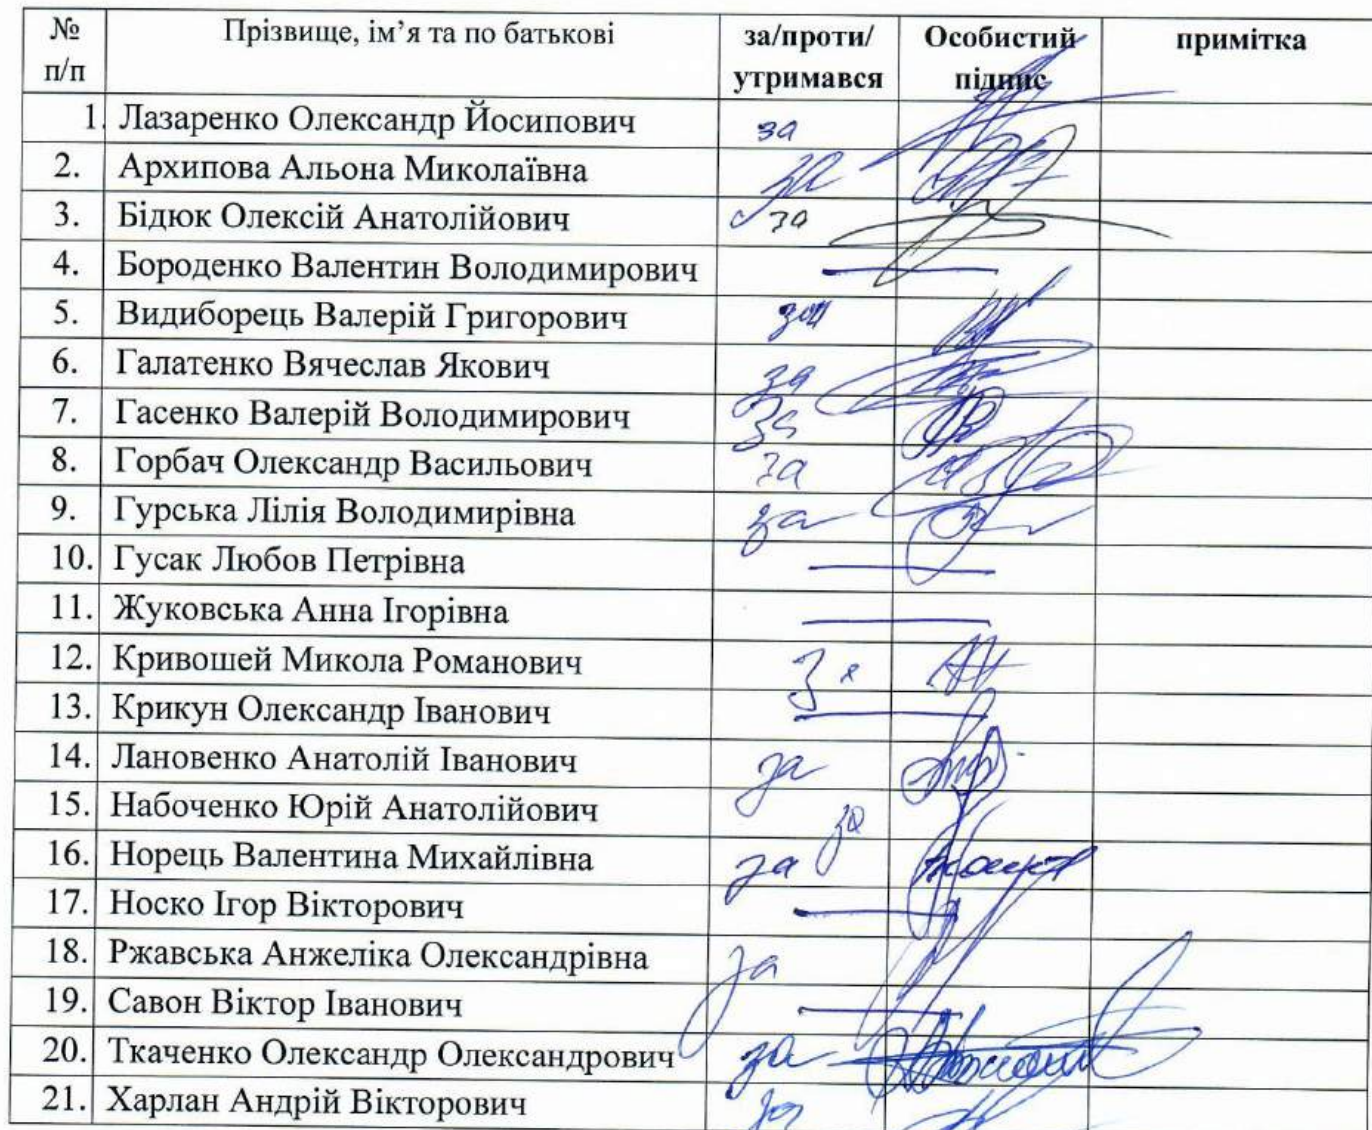 № п/п Прізвище, ім’я та по батькові за/проти/ утримався Особистий підпис примітка
1. Лазаренко Олександр Йосипович за
2. Архипова Альона Миколаївна за
3. Бідюк Олексій Анатолійович за
4. Бороденко Валентин Володимирович
5. Видиборець Валерій Григорович за
6. Галатенко Вячеслав Якович за
7. Гасенко Валерій Володимирович за
8. Горбач Олександр Васильович за
9. Гурська Лілія Володимирівна за
10. Гусак Любов Петрівна
11. Жуковська Анна Ігорівна
12. Кривошей Микола Романович за
13. Крикун Олександр Іванович
14. Лановенко Анатолій Іванович за
15. Набоченко Юрій Анатолійович за
16. Норець Валентина Михайлівна за
17. Носко Ігор Вікторович
18. Ржавська Анжеліка Олександрівна за
19. Савон Віктор Іванович
20. Ткаченко Олександр Олександрович за
21. Харлан Андрій Вікторович за